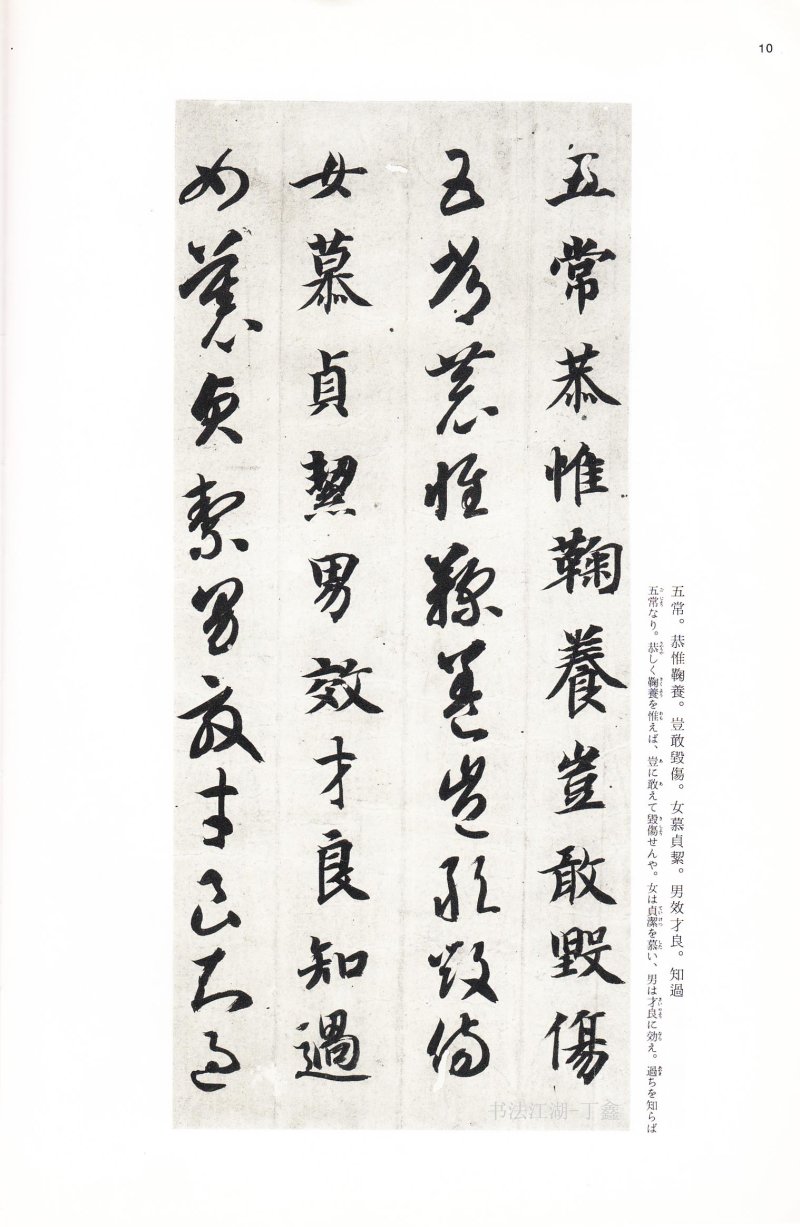 10
五常恭惟鞠養豈敢毀傷
五常恭惟鞠養豈敢毀傷
女慕貞絜男效才良知過
女慕貞絜男效才良知過
五常。恭惟鞠養。豈敢毀傷。女慕貞絜。男效才良。知過
五常なり。恭しく鞠養を惟えば、豈に敢えて毀傷せんや。女は貞潔を慕い、男は才良に効え。過ちを知らば
书法江湖-丁鑫